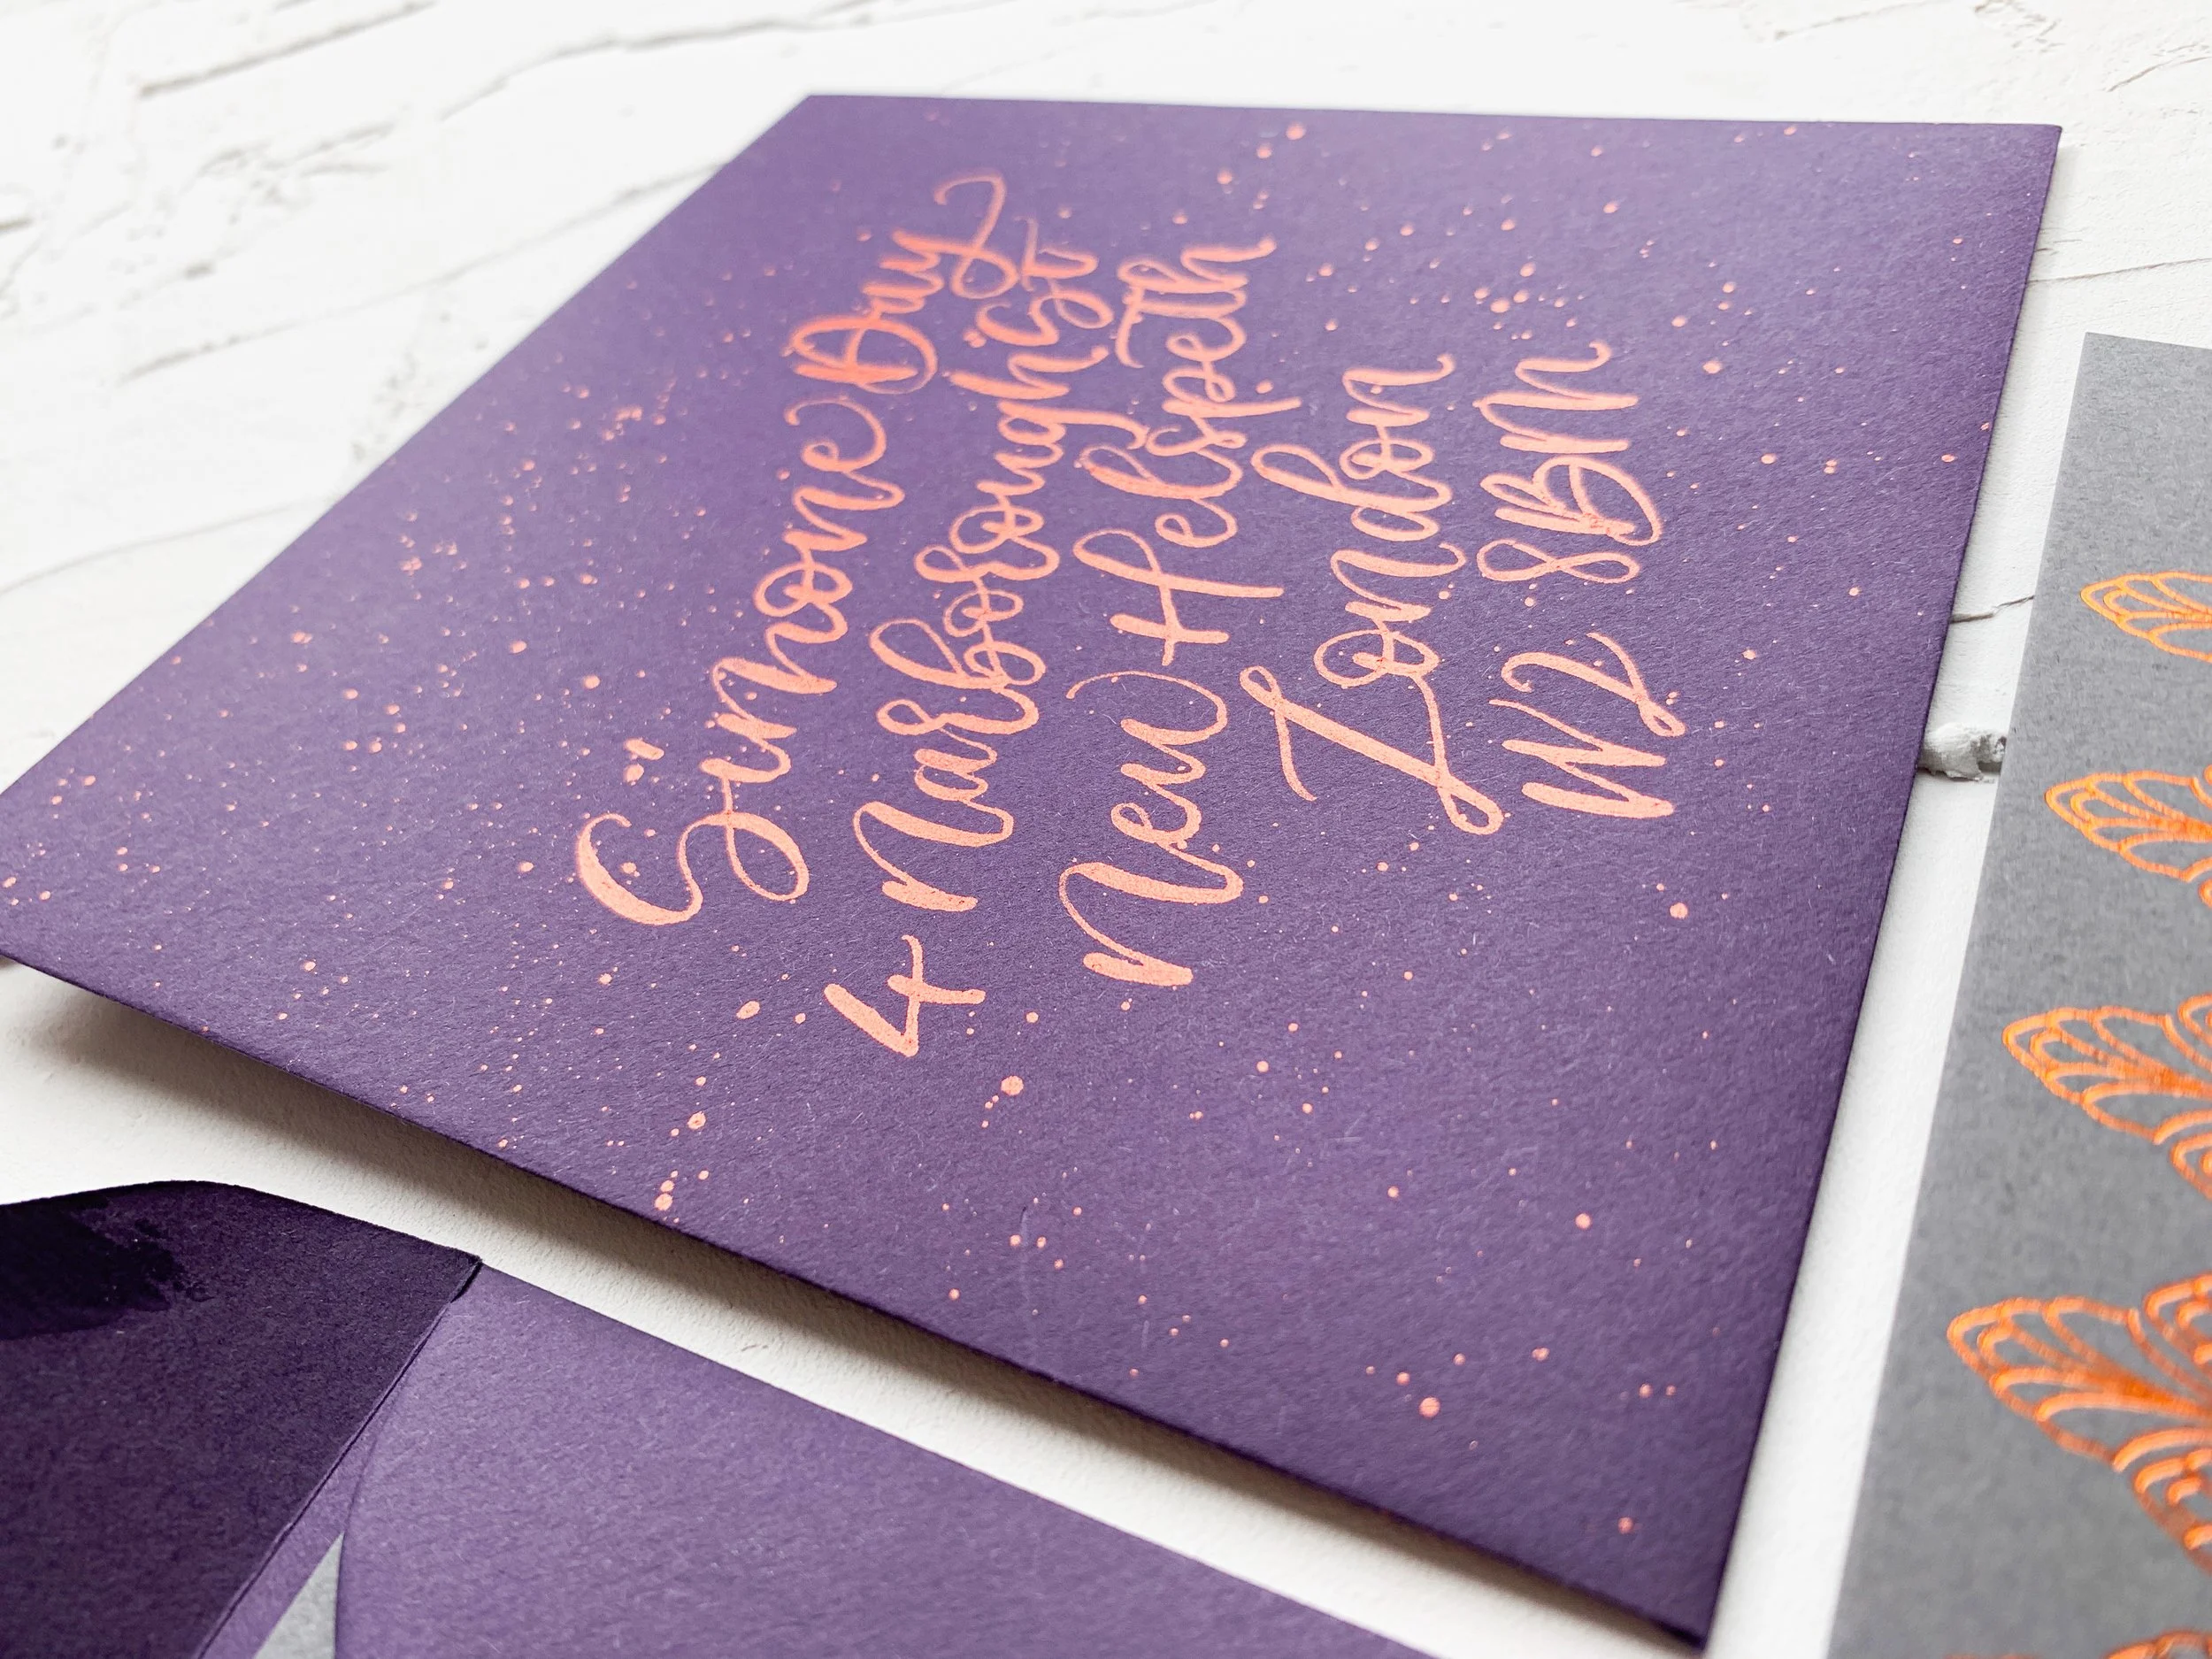 Simone Day
4 Narborough St
New Helspeth
London
W2 8BN